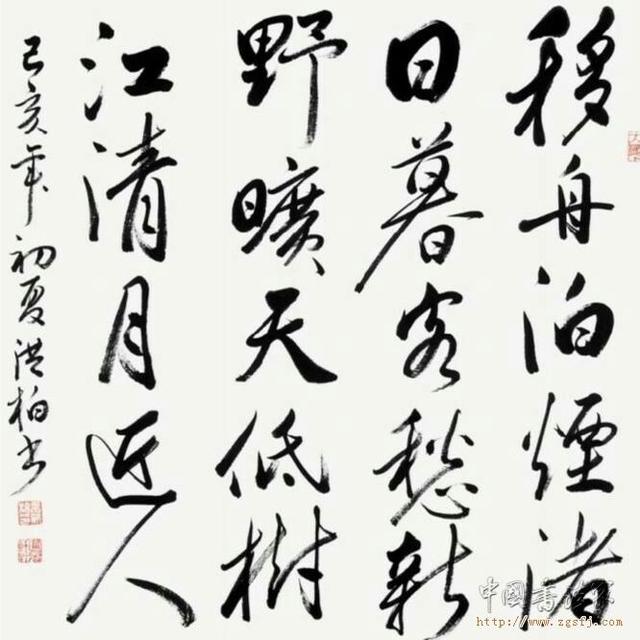 移舟泊煙渚
日暮客愁新
野曠天低樹
江清月近人
己亥年初夏洪柏书
http://www.zgsfj.com